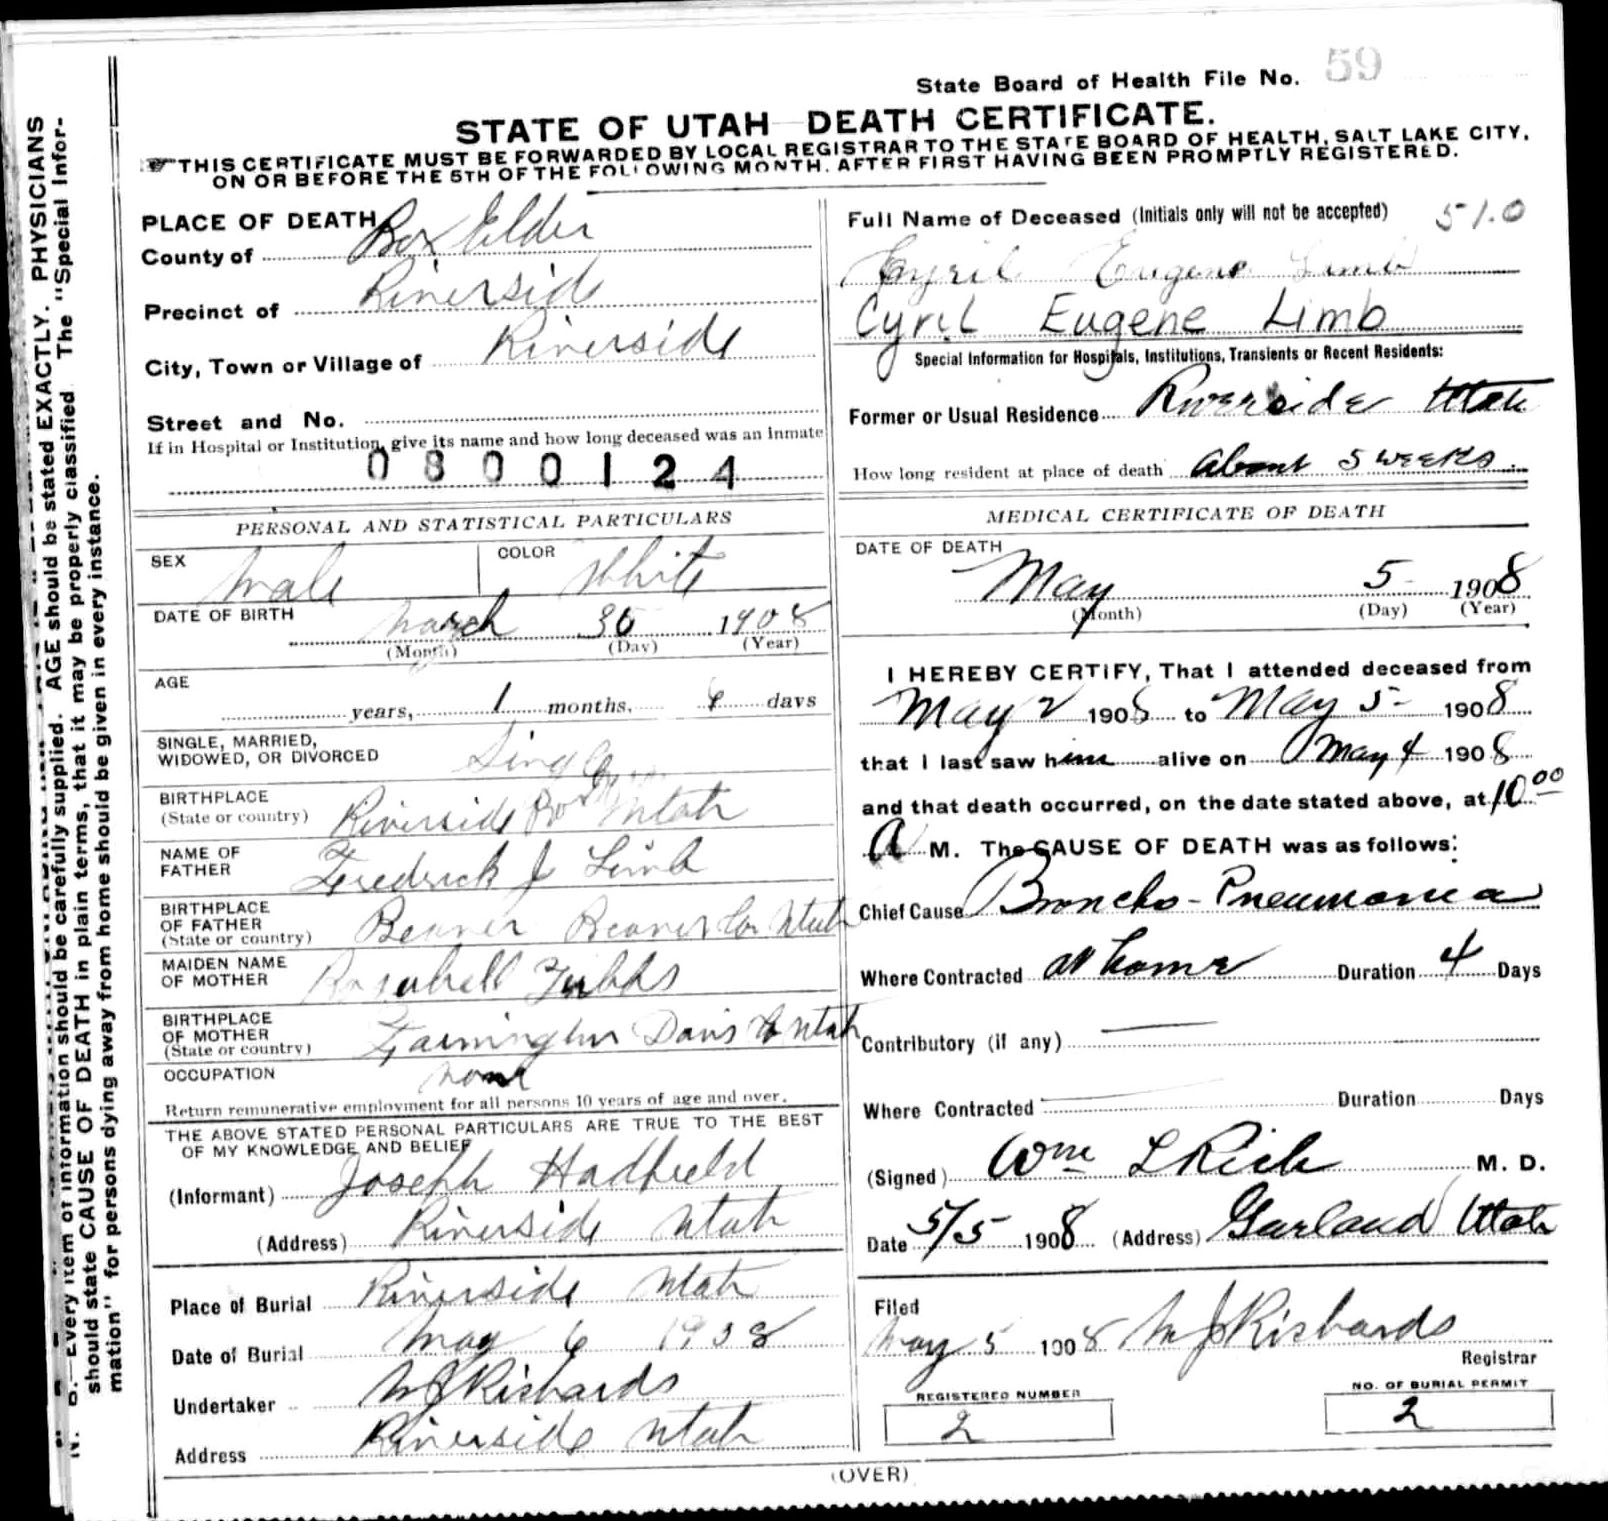 State Board of Health File No. 59
STATE OF UTAH DEATH CERTIFICATE.
THIS CERTIFICATE MUST BE FORWARDED BY LOCAL REGISTRAR TO THE STATE BOARD OF HEALTH, SALT LAKE CITY,
ON OR BEFORE THE 5TH OF THE FOLLOWING MONTH, AFTER FIRST HAVING BEEN PROMPTLY REGISTERED.
PLACE OF DEATH
County of Box Elder
Precinct of Riverside
City, Town or Village of Riverside
Street and No.
If in Hospital or Institution, give its name and how long deceased was an inmate
0800124
PERSONAL AND STATISTICAL PARTICULARS
SEX Male COLOR White
DATE OF BIRTH March 30 1908
(Month) (Day) (Year)
AGE
years, 1 months, days
SINGLE, MARRIED,
WIDOWED, OR DIVORCED Single
BIRTHPLACE
(State or country) Riverside Box Utah
NAME OF
FATHER Frederick J Limb
BIRTHPLACE
OF FATHER
(State or country) Beaver Beaver Co Utah
MAIDEN NAME
OF MOTHER
BIRTHPLACE
OF MOTHER
(State or country) Farmington Davis Co Utah
OCCUPATION none
Return remunerative employment for all persons 10 years of age and over.
THE ABOVE STATED PERSONAL PARTICULARS ARE TRUE TO THE BEST
OF MY KNOWLEDGE AND BELIEF
(Informant) Joseph Hadfield
(Address) Riverside Utah
Place of Burial Riverside Utah
Date of Burial May 6 1908
Undertaker M J Richards
Address Riverside Utah
Full Name of Deceased (Initials only will not be accepted) 51.0
Cyril Eugene Limb
Cyril Eugene Limb
Special Information for Hospitals, Institutions, Transients or Recent Residents:
Former or Usual Residence Riverside Utah
How long resident at place of death About 5 weeks
MEDICAL CERTIFICATE OF DEATH
DATE OF DEATH
May 5 1908
(Month) (Day) (Year)
I HEREBY CERTIFY, That I attended deceased from
May 2 1908 to May 5 1908
that I last saw him alive on May 4 1908
and that death occurred, on the date stated above, at 10 00
A M. The CAUSE OF DEATH was as follows:
Chief Cause Broncho-Pneumonia
Where Contracted at home Duration 4 Days
Contributory (if any)
Where Contracted Duration Days
(Signed) Wm L Rich M. D.
Date 5/5 1908 (Address) Garland Utah
Filed
May 5 1908 M J Richards
Registrar
REGISTERED NUMBER
2
NO. OF BURIAL PERMIT
2
(OVER)
N. B.—Every item of information should be carefully supplied. AGE should be stated EXACTLY. PHYSICIANS
should state CAUSE OF DEATH in plain terms, that it may be properly classified. The "Special Infor-
mation" for persons dying away from home should be given in every instance.